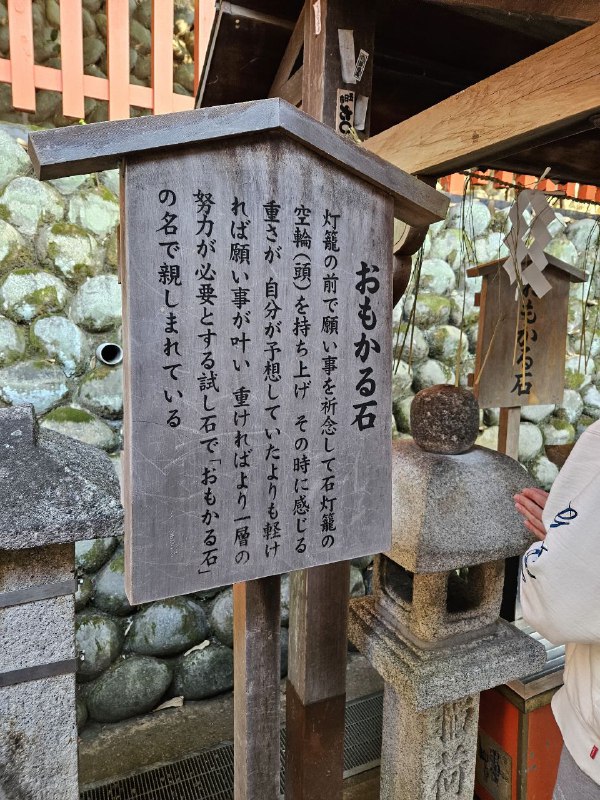 おもかる石
灯籠の前で願い事を祈念して石灯籠の
空輪(頭)を持ち上げ その時に感じる
重さが 自分が予想していたよりも軽け
れば願い事が叶い 重ければより一層の
努力が必要とする試し石で「おもかる石」
の名で親しまれている
もかる石
稲荷